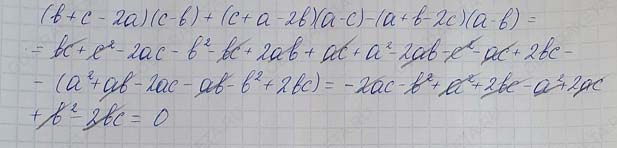 (b+c-2a)(c-b)+(c+a-2b)(a-c)-(a+b-2c)(a-b)=
=bc+c²-2ac-b²-bc+2ab+ac+a²-2ab-c²-ac+2bc-
-(a²+ab-2ac-ab-b²+2bc)=-2ac-b²+a²+2bc-a²+2ac
+b²-2bc=0